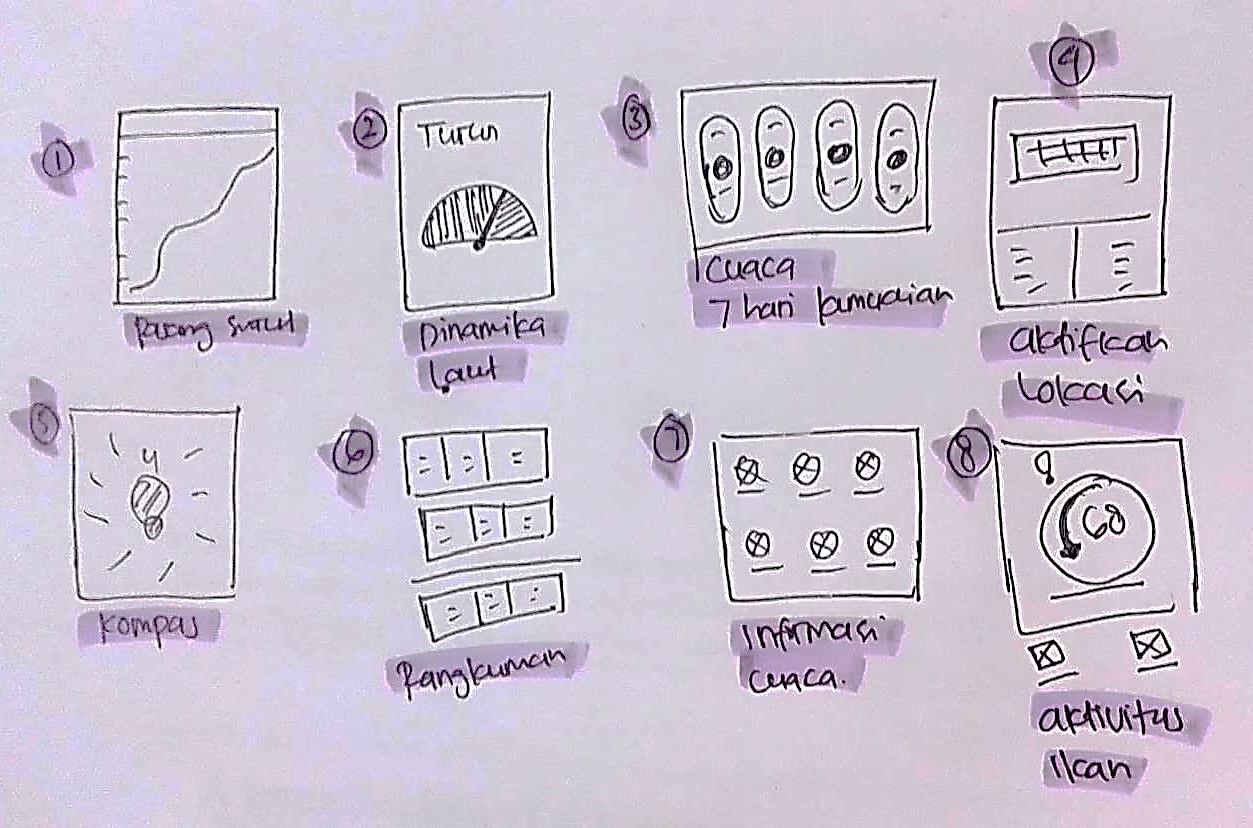 1
Pasang surut
2
Turun
Dinamika
laut
3
Cuaca
7 hari kemudian
4
aktifkan
lokasi
5
Kompas
6
Rangkuman
7
Informasi
cuaca.
8
60
aktivitas
ikan